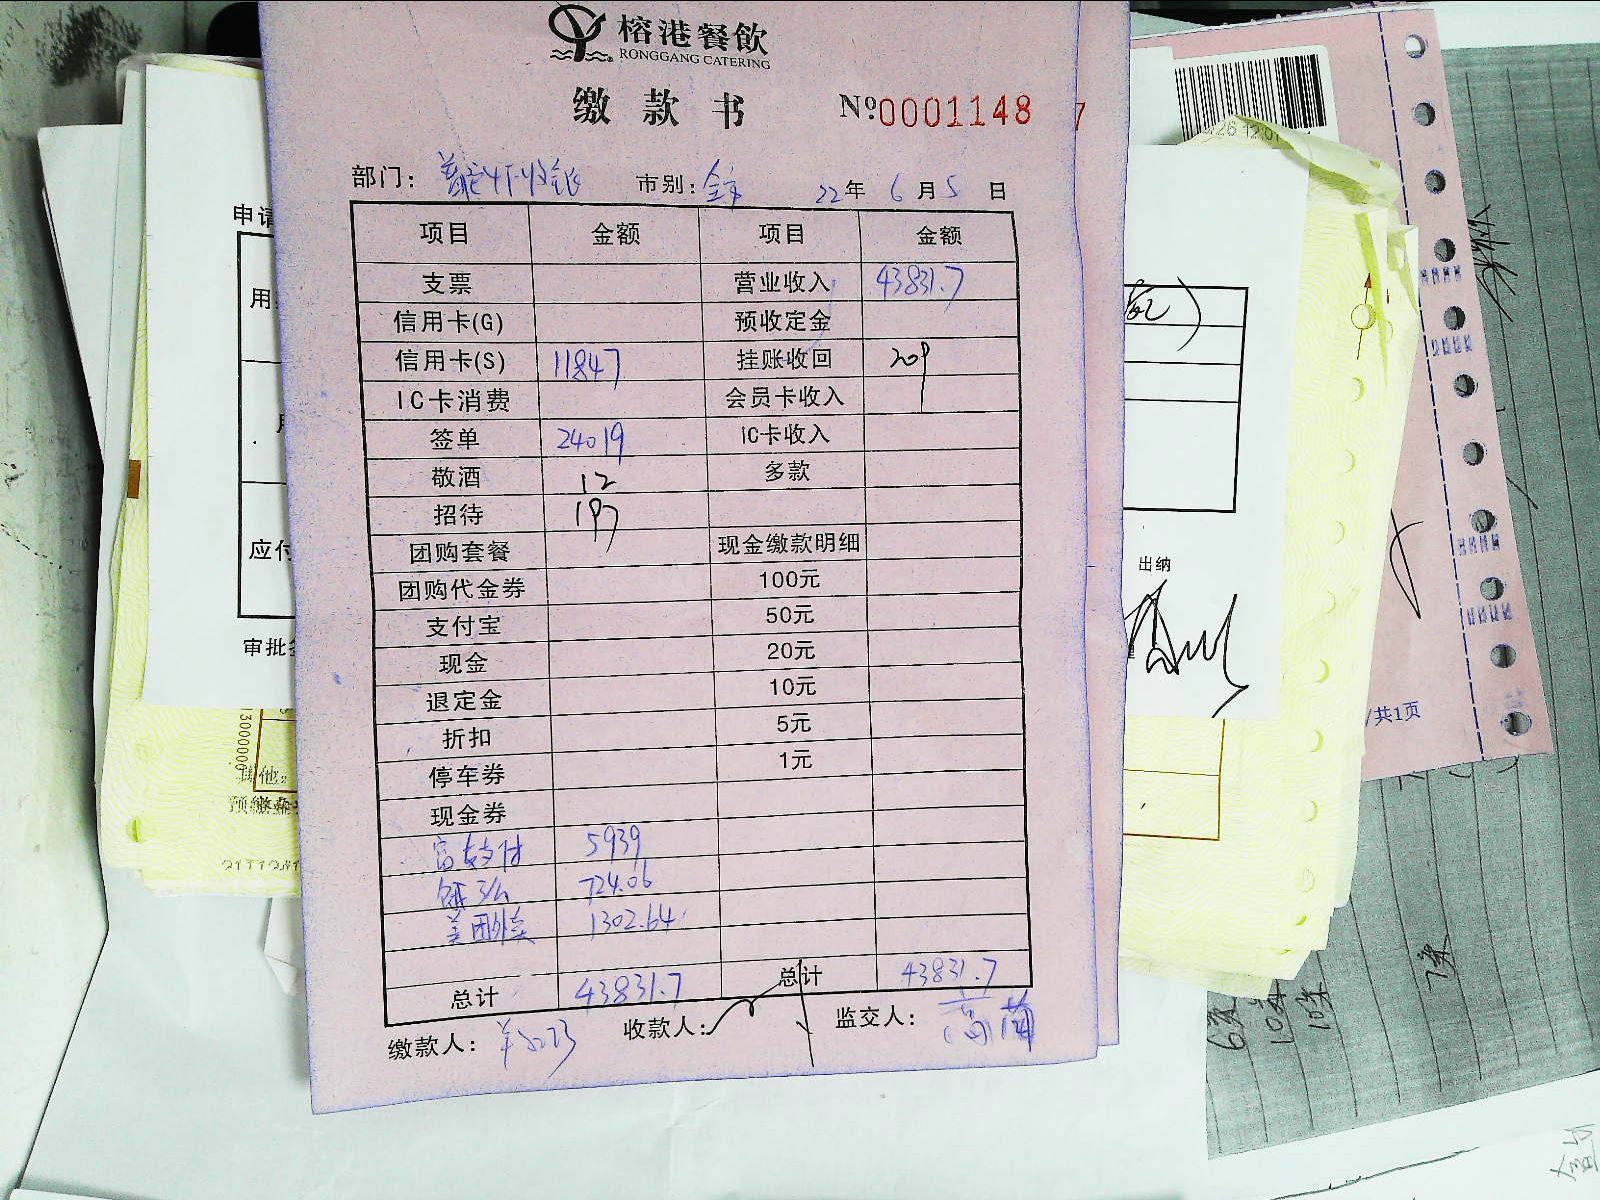 榕港餐飲
RONGGANG CATERING
缴款书 Nº:0001148 7
部门: 市别: 22年 6月 5日
项目 金额 项目 金额
支票 营业收入 43831.7
信用卡(G) 预收定金
信用卡(S) 11847 挂账收回 209
IC卡消费 会员卡收入
签单 24019 IC卡收入
敬酒 12 多款
招待 197
团购套餐 现金缴款明细
团购代金券 100元
支付宝 50元
现金 20元
退定金 10元
折扣 5元
停车券 1元
现金券
5939
724.06
美团外卖 1302.64
总计 43831.7 总计 43831.7
缴款人: 收款人: 监交人:
申请
用
应付
审批
出纳
/共1页
其他:
13000000
6条
10条
7条